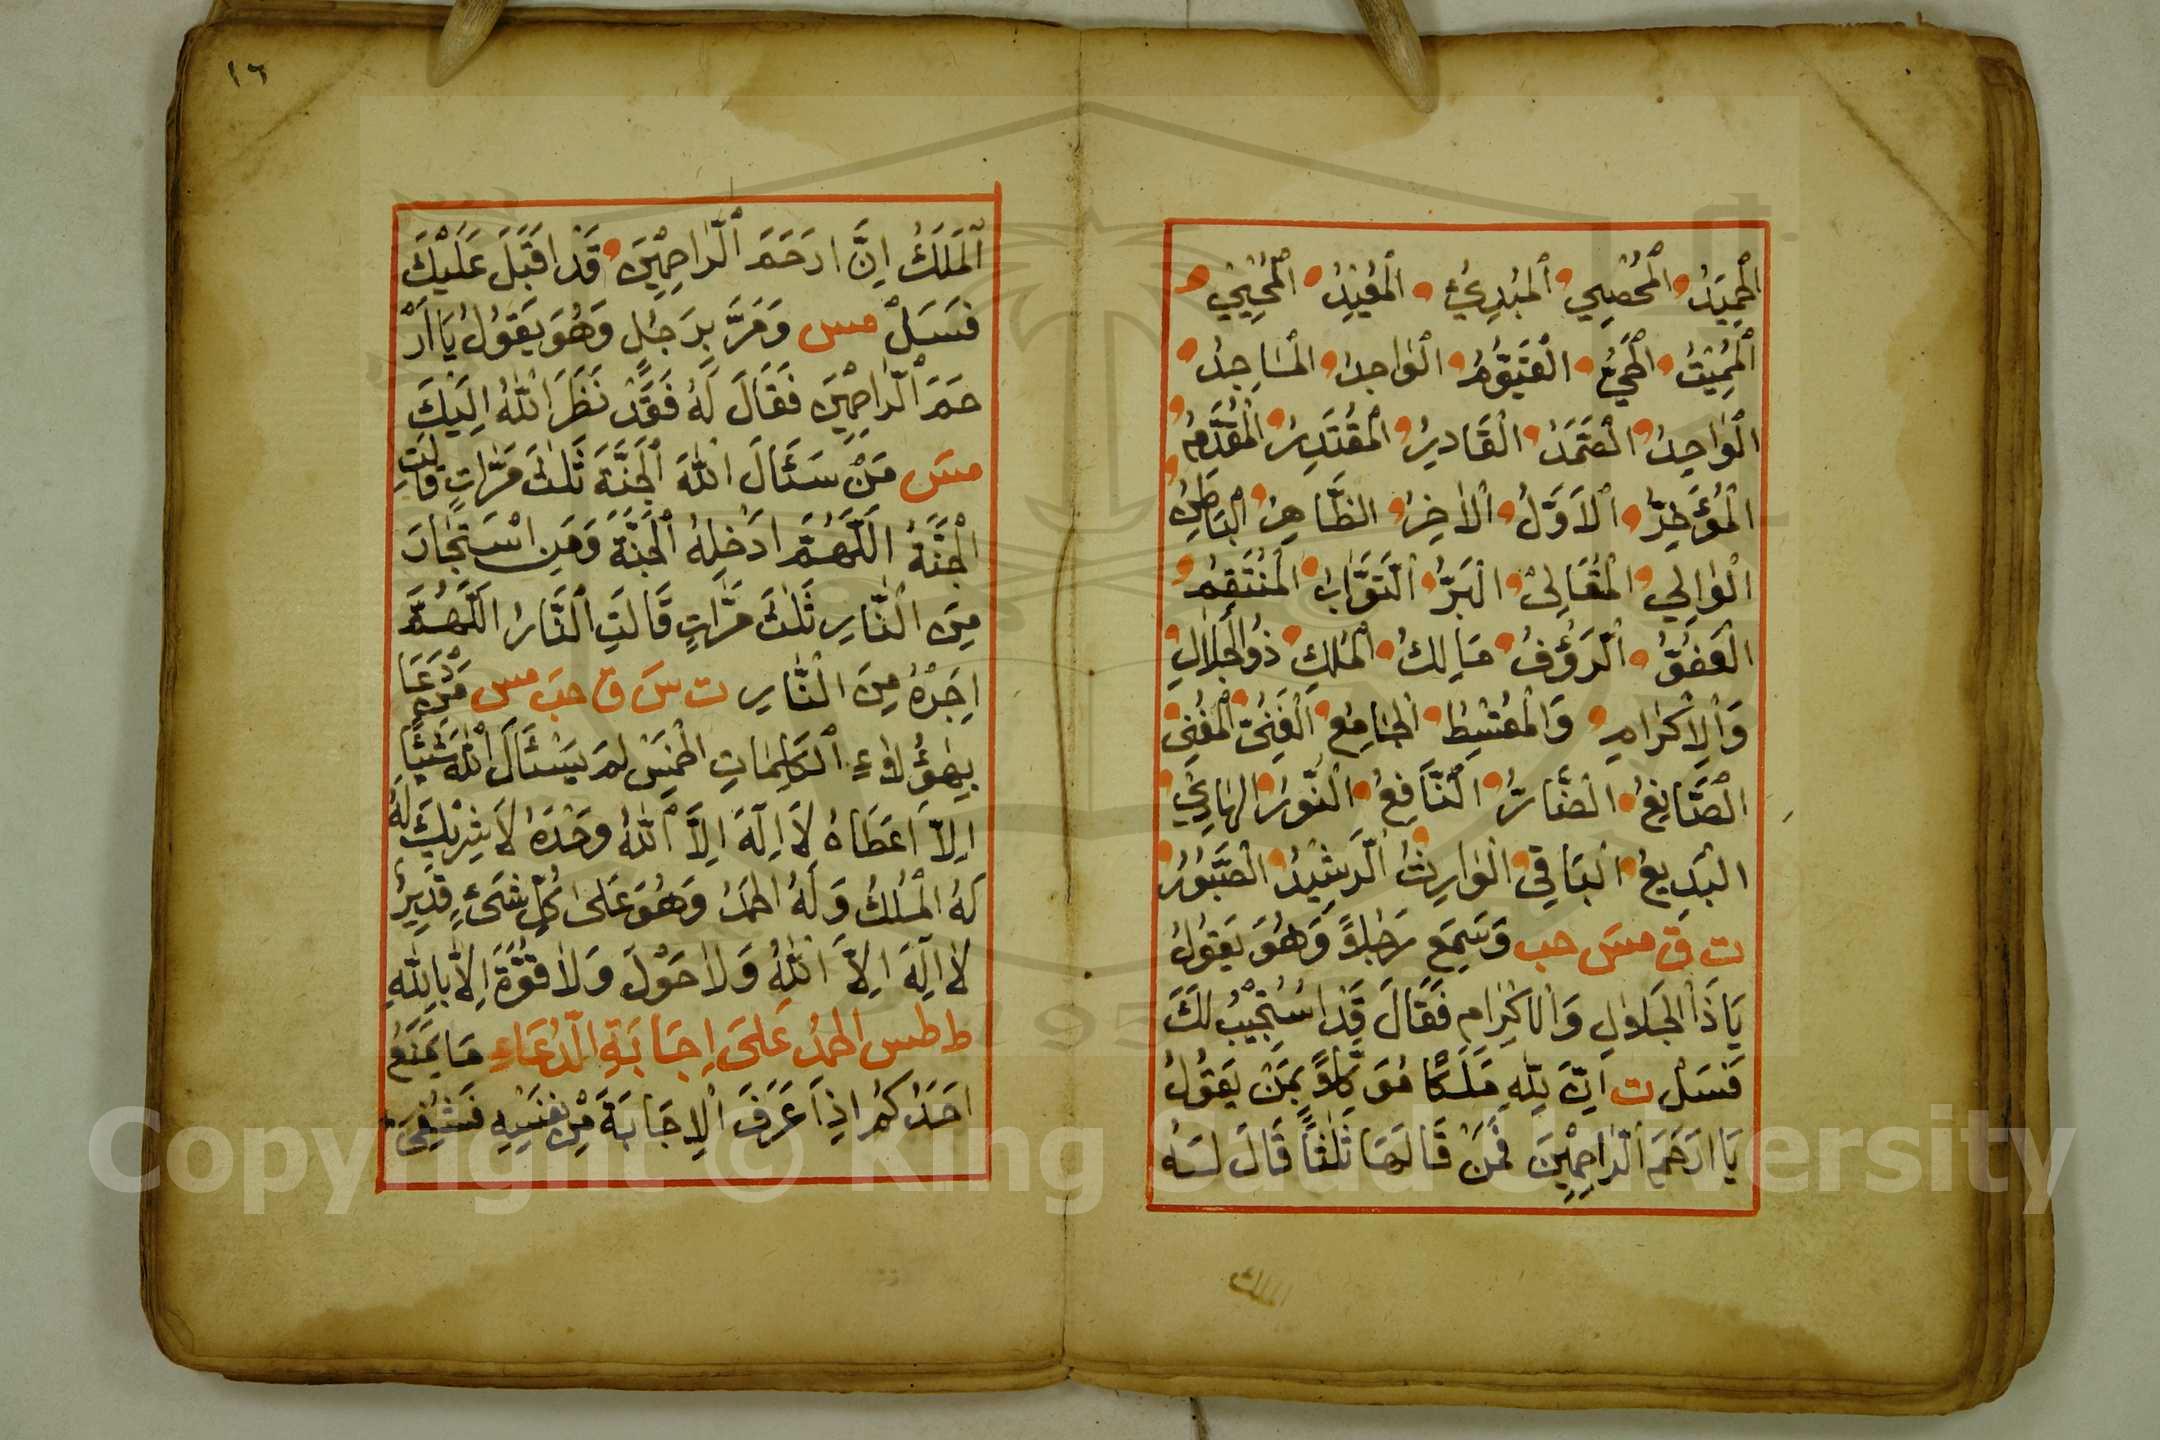 اَلْحَمِيدُ اَلْمُحْصِي اَلْمُبْدِئُ اَلْمُعِيْدُ اَلْمُحْيِيْ
اَلْمُمِيْتُ اَلْحَيُّ اَلْقَيُّوْمُ اَلْوَاجِدُ اَلْمَاجِدُ
اَلْوَاحِدُ اَلصَّمَدُ اَلْقَادِيرُ اَلْمُقْتَدِرُ اَلْمُقَدِّمُ
اَلْمُؤَخِّرُ اَلْاَوَّلُ اَلْاٰخِرُ اَلظَّاهِرُ اَلْبَاطِنُ
اَلْوَالِي اَلْمُتَعَالِيْ اَلْبَرُّ اَلتَّوَّابُ اَلْمُنْتَقِمُ
اَلْعَفُوُّ اَلرَّؤُفُ مَالِكُ الْمُلْكِ ذُوالْجَلَالِ
وَالْاِكْرَامِ وَالْمُقْسِطُ اَلْجَامِعُ اَلْغَنِيُّ اَلْمُغْنِي
اَلصَّانِعُ اَلضَّارُّ اَلنَّافِعُ اَلنُّورُ اَلهَادِي
اَلْبَدِيعُ اَلْبَاقِي اَلْوَارِثُ اَلرَّشِيْدُ اَلصَّبُوْرُ
ت ق مس حب وَسَمِعَ رَجُلًا وَهُوَ يَقُولُ
يَاذَا الْجَلَالِ وَالْاِكْرَامِ فَقَالَ قَدِ اسْتُجِيْبُ لَكَ
فَسَلْ ت اِنَّ لِلّٰهِ مَلَكًا مُوَكَّلًا بِمَنْ يَقُوْلُ
يَا اَرْحَمَ الرَّاحِمِيْنَ فَمَنْ قَالَهَا ثَلٰثًا قَالَ لَهُ
الملك
١٦
اَلْمَلَكُ اِنَّ اَرْحَمَ الرَّاحِمِيْنَ قَدْ اَقْبَلَ عَلَيْكَ
فَسَلْ مس وَمَرَّ بِرَجُلٍ وَهُوَ يَقُوْلُ يَا اَرْ
حَمَ الرَّاحِمِيْنَ فَقَالَ لَهُ فَقَدْ نَظَرَ اللّٰهُ اِلَيْكَ
مس مَنْ سَئَالَ اللّٰهَ الْجَنَّةَ ثَلٰثَ مَرَّاتٍ قَالَتِ
الْجَنَّةُ اَللّٰهُمَّ اَدْخِلْهُ الْجَنَّةَ وَمَنِ اسْتَجَارَ
مِنَ النَّارِ ثَلٰثَ مَرَّاتٍ قَالَتِ النَّارُ اَللّٰهُمَّ
اَجِرْهُ مِنَ النَّارِ ت س ق حب مس مَنْ دَعَا
بِهٰؤُلَاءِ الْكَلِمَاتِ الْخَمْسِ لَمْ يَسْئَالِ اللّٰهَ شَيْئًا
اِلَّا اَعْطَاهُ لَا اِلٰهَ اِلَّا اللّٰهُ وَحْدَهُ لَا شَرِيْكَ لَهُ
لَهُ الْمُلْكُ وَلَهُ الْحَمْدُ وَهُوَ عَلٰى كُلِّ شَئٍ قَدِيرٌ
لَا اِلٰهَ اِلَّا اللّٰهُ وَلَا حَوْلَ وَلَا قُوَّةَ اِلَّا بِاللّٰهِ
ط طس الحمدُ عَلَى اِجَابَةِ الدُّعَاءِ مَا يَمْنَعُ
اَحَدَكُمْ اِذَا عَرَفَ الْاِجَابَةَ مِنْ نَفْسِهِ فَشُفِيَ
Copyright © King Saud University